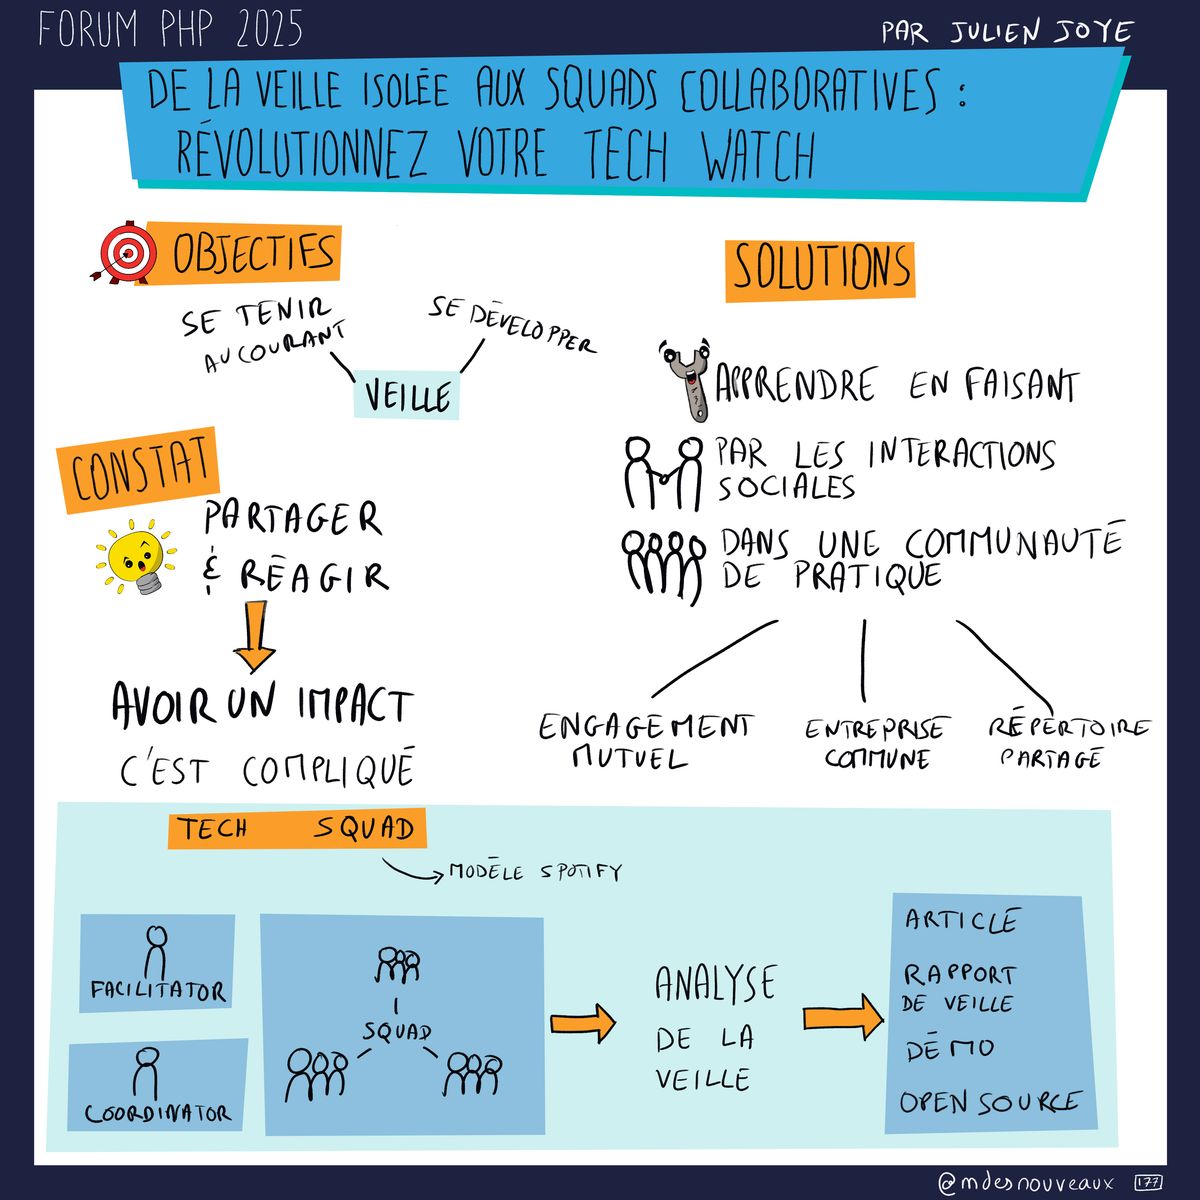 FORUM PHP 2025
PAR JULIEN JOYE
DE LA VEILLE ISOLÉE AUX SQUADS COLLABORATIVES :
RÉVOLUTIONNEZ VOTRE TECH WATCH
OBJECTIFS
SE TENIR
AU COURANT
SE DÉVELOPPER
VEILLE
CONSTAT
PARTAGER
& RÉAGIR
AVOIR UN IMPACT
C'EST COMPLIQUÉ
SOLUTIONS
APPRENDRE EN FAISANT
PAR LES INTERACTIONS
SOCIALES
DANS UNE COMMUNAUTÉ
DE PRATIQUE
ENGAGEMENT
MUTUEL
ENTREPRISE
COMMUNE
RÉPERTOIRE
PARTAGÉ
TECH SQUAD
MODÈLE SPOTIFY
FACILITATOR
COORDINATOR
SQUAD
ANALYSE
DE LA
VEILLE
ARTICLE
RAPPORT
DE VEILLE
DÉMO
OPEN SOURCE
@mdesnouveaux 177